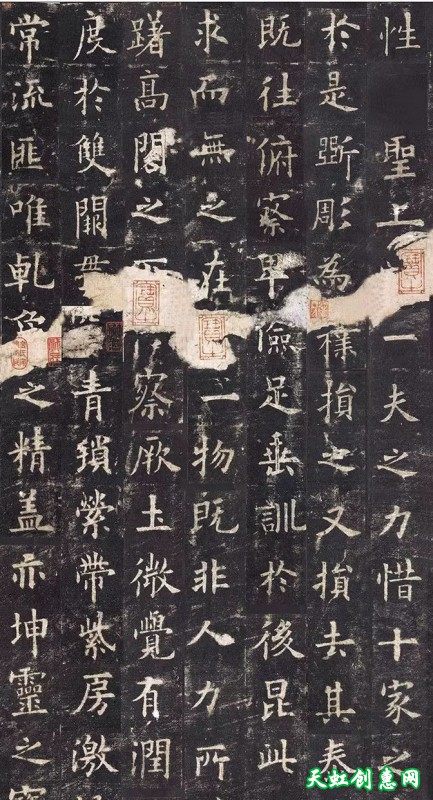 性 聖上一夫之力惜十家之
於是斲彫為樸損之又損去其泰
既往俯察卑儉足垂訓於後昆此
求而無之在一物既非人力所
躇高閣之察厥土微覺有潤
度於雙闕青鎖縈帶紫房激
常流匪唯乾之精蓋亦坤靈之寶
天虹创惠网